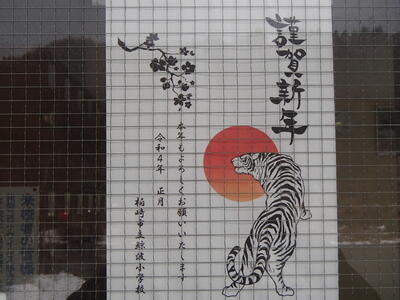 謹賀新年
本年もよろしくお願いいたします
令和4年 正月
柏崎市立鯨波小学校